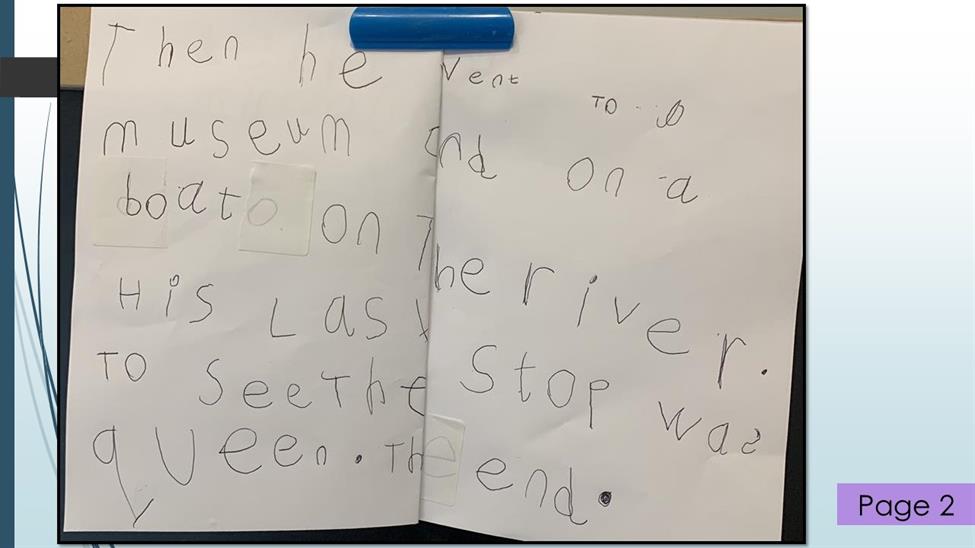 Then he went to a
museum and on a
boat on the river.
His Last stop was
TO see The
queen. The end.
Page 2